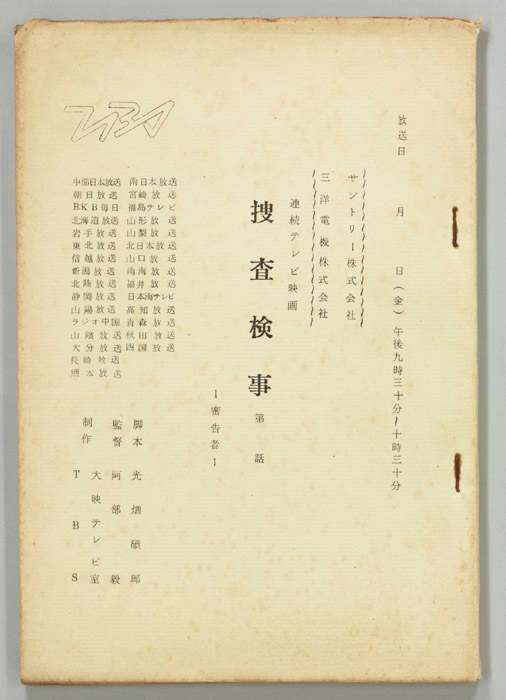 放送日　月　日（金）午後九時三十分～十時三十分
サントリー株式会社
三洋電機株式会社
連続テレビ映画
捜査検事 第　話
ー密告者ー
脚本 光畑碩郎
監督 阿部毅
制作 大映テレビ室
TBS
TBS
中部日本放送 南日本放送
朝日放送 宮崎放送
RKB毎日放送 福島テレビ
北海道放送 山形放送
岩手放送 山梨放送
東北放送 北日本放送
信越放送 山口放送
新潟放送 南海放送
北陸放送 福井放送
静岡放送 日本海テレビ
山陽放送 高知放送
ラジオ中国 青森放送
山陰放送 秋田放送
大分放送 四国放送
長崎放送
熊本放送